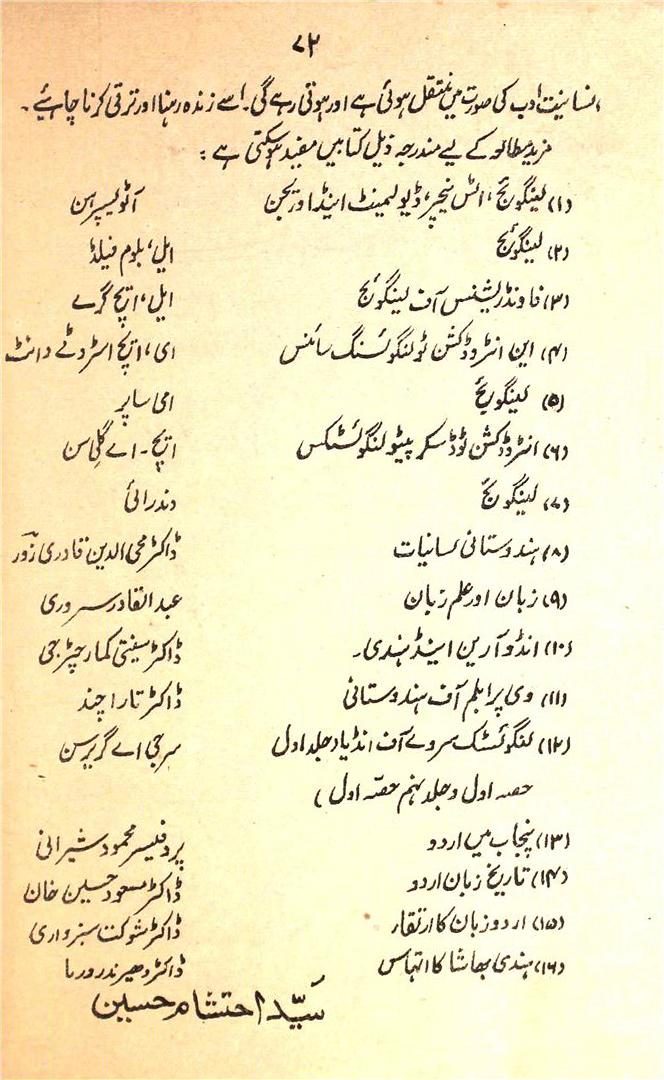 ۷۲
انسانیت ادب کی صورت میں منتقل ہوئی ہے اور ہوتی رہے گی۔ اسے زندہ رہنا اور ترقی کرنا چاہیے۔
مزید مطالعہ کے لیے مندرجہ ذیل کتابیں مفید ہوسکتی ہے :
(۱) لینگویج، اٹس نیچر، ڈیولپمینٹ اینڈ اوریجن آٹو یسپرسن
(۲) لینگویج ایل، بلوم فیلڈ
(۳) فاونڈریشنس آف لینگویج ایل، ایچ گرے
(۴) این انٹروڈکشن ٹو لنگوئسٹک سائنس ای، ایچ اسٹروٹے وانٹ
(۵) لینگویج امی ساپر
(۶) انٹروڈکشن ٹو ڈسکرپیٹو لنگوئسٹکس ایچ۔ اے گلی سن
(۷) لینگویج وندرائی
(۸) ہندوستانی لسانیات ڈاکٹر محی الدین قادری زورؔ
(۹) زبان اور علم زبان عبدالقادر سروری
(۱۰) انڈو آرین اینڈ ہندی۔ ڈاکٹر سینتی کمار چٹرجی
(۱۱) دی پرابلم آف ہندوستانی ڈاکٹر تارا چند
(۱۲) لنگوئسٹک سروے آف انڈیا (جلد اول سر جی اے گریرسن
حصہ اول و جلد نہم حصّہ اول)
(۱۳) پنجاب میں اردو پروفیسر محمود شیرانی
(۱۴) تاریخ زبان اردو ڈاکٹر مسعود حسین خان
(۱۵) اردو زبان کا ارتقار ڈاکٹر شوکت سبزواری
(۱۶) ہندی بھاشا کا اتہاس ڈاکٹر دھیرندر ورما
سیّد احتشام حسین